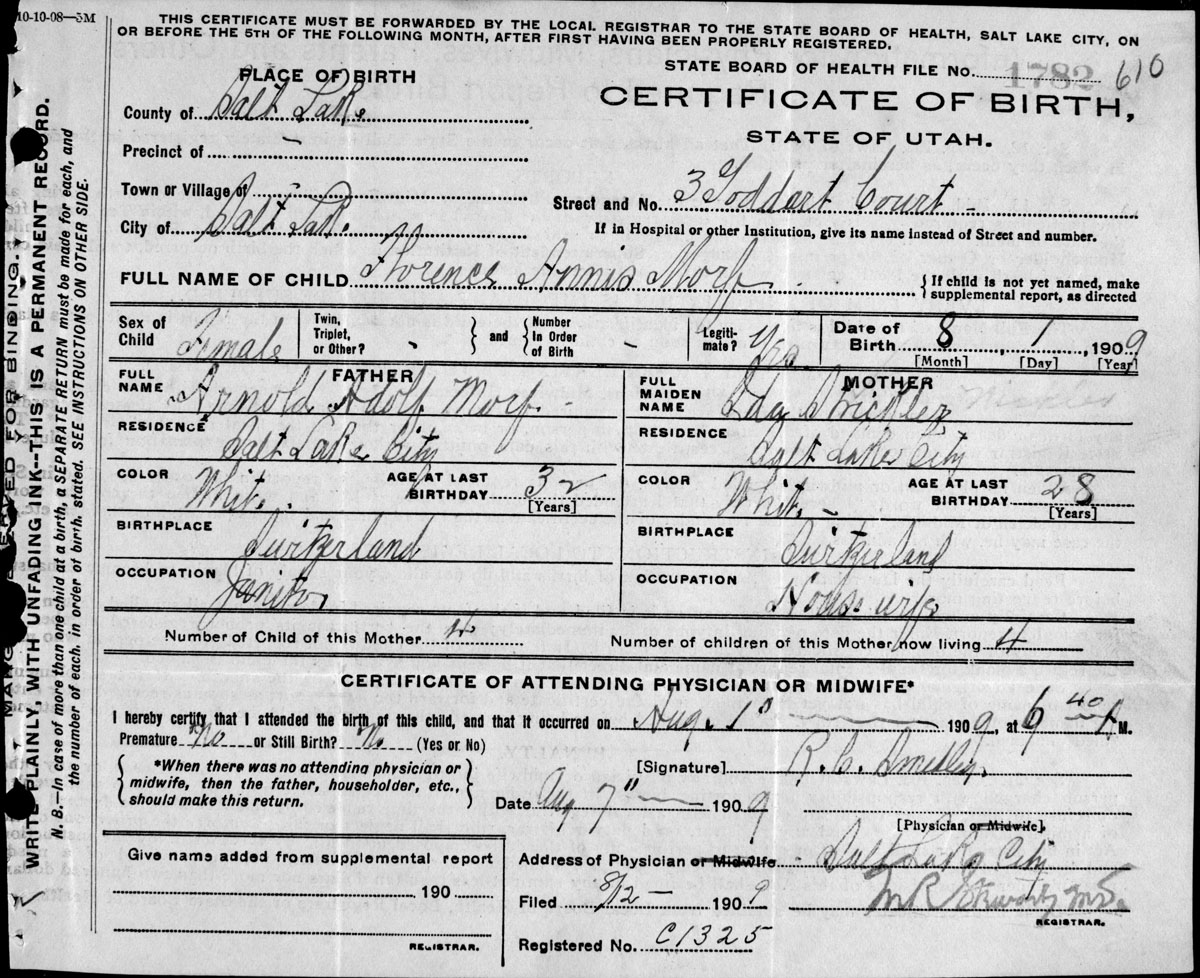 10-10-08—5M
THIS CERTIFICATE MUST BE FORWARDED BY THE LOCAL REGISTRAR TO THE STATE BOARD OF HEALTH, SALT LAKE CITY, ON
OR BEFORE THE 5TH OF THE FOLLOWING MONTH, AFTER FIRST HAVING BEEN PROPERLY REGISTERED.
PLACE OF BIRTH
STATE BOARD OF HEALTH FILE NO. 1782 610
County of Salt Lake
CERTIFICATE OF BIRTH,
STATE OF UTAH.
Precinct of
Town or Village of
Street and No. 3 Goddart Court
City of Salt Lake
If in Hospital or other Institution, give its name instead of Street and number.
FULL NAME OF CHILD Florence Annis Morf
{ If child is not yet named, make
supplemental report, as directed
Sex of Child Female
Twin, Triplet, or Other? - } and { Number In Order of Birth -
Legitimate? Yes
Date of Birth 8 1, 1909
[Month] [Day] [Year]
FATHER
FULL NAME Arnold Adolf Morf
RESIDENCE Salt Lake City
COLOR White
AGE AT LAST BIRTHDAY 32
[Years]
BIRTHPLACE Switzerland
OCCUPATION Janitor
MOTHER
FULL MAIDEN NAME Ida Strickler
RESIDENCE Salt Lake City
COLOR White
AGE AT LAST BIRTHDAY 28
[Years]
BIRTHPLACE Switzerland
OCCUPATION Housewife
Number of Child of this Mother 4
Number of children of this Mother now living 4
CERTIFICATE OF ATTENDING PHYSICIAN OR MIDWIFE*
I hereby certify that I attended the birth of this child, and that it occurred on Aug. 1" 1909, at 6 40 A M.
Premature no or Still Birth? No (Yes or No)
{ *When there was no attending physician or
midwife, then the father, householder, etc.,
should make this return. }
[Signature] R. C. Smedley
Date Aug 7" 1909
[Physician or Midwife].
Give name added from supplemental report
190
REGISTRAR.
Address of Physician or Midwife Salt Lake City
Filed 8/12 — 1909
M R Stewart M.D.
REGISTRAR.
Registered No. C1325
WRITE PLAINLY, WITH UNFADING INK—THIS IS A PERMANENT RECORD.
N. B.—In case of more than one child at a birth, a SEPARATE RETURN must be made for each, and
the number of each, in order of birth, stated. SEE INSTRUCTIONS ON OTHER SIDE.